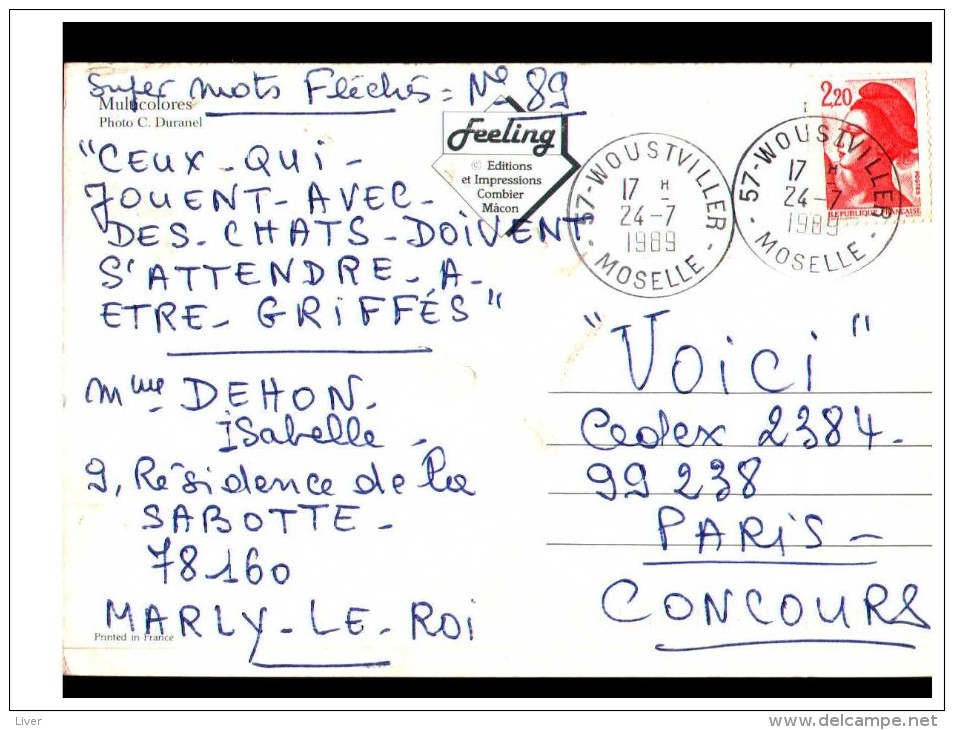 Super Mots Fléchés = N° 89
Multicolores
Photo C. Duranel
Feeling
© Editions
et Impressions
Combier
Mâcon
"CEUX-QUI-
JOUENT-AVEC-
DES-CHATS-DOIVENT
S'ATTENDRE-A-
ETRE-GRIFFÉS"
Mme DEHON-
Isabelle-
9, Résidence de la
SABOTTE-
78160
MARLY-LE-ROI
Printed in France
57-WOUSTVILLER-
17 H
24-7
1989
MOSELLE
57-WOUSTVILLER-
17 H
24-7
1989
MOSELLE
2,20
POSTES
REPUBLIQUE FRANÇAISE
"Voici"
Cedex 2384-
99 238
PARIS-
CONCOURS
Liver
www.delcampe.net